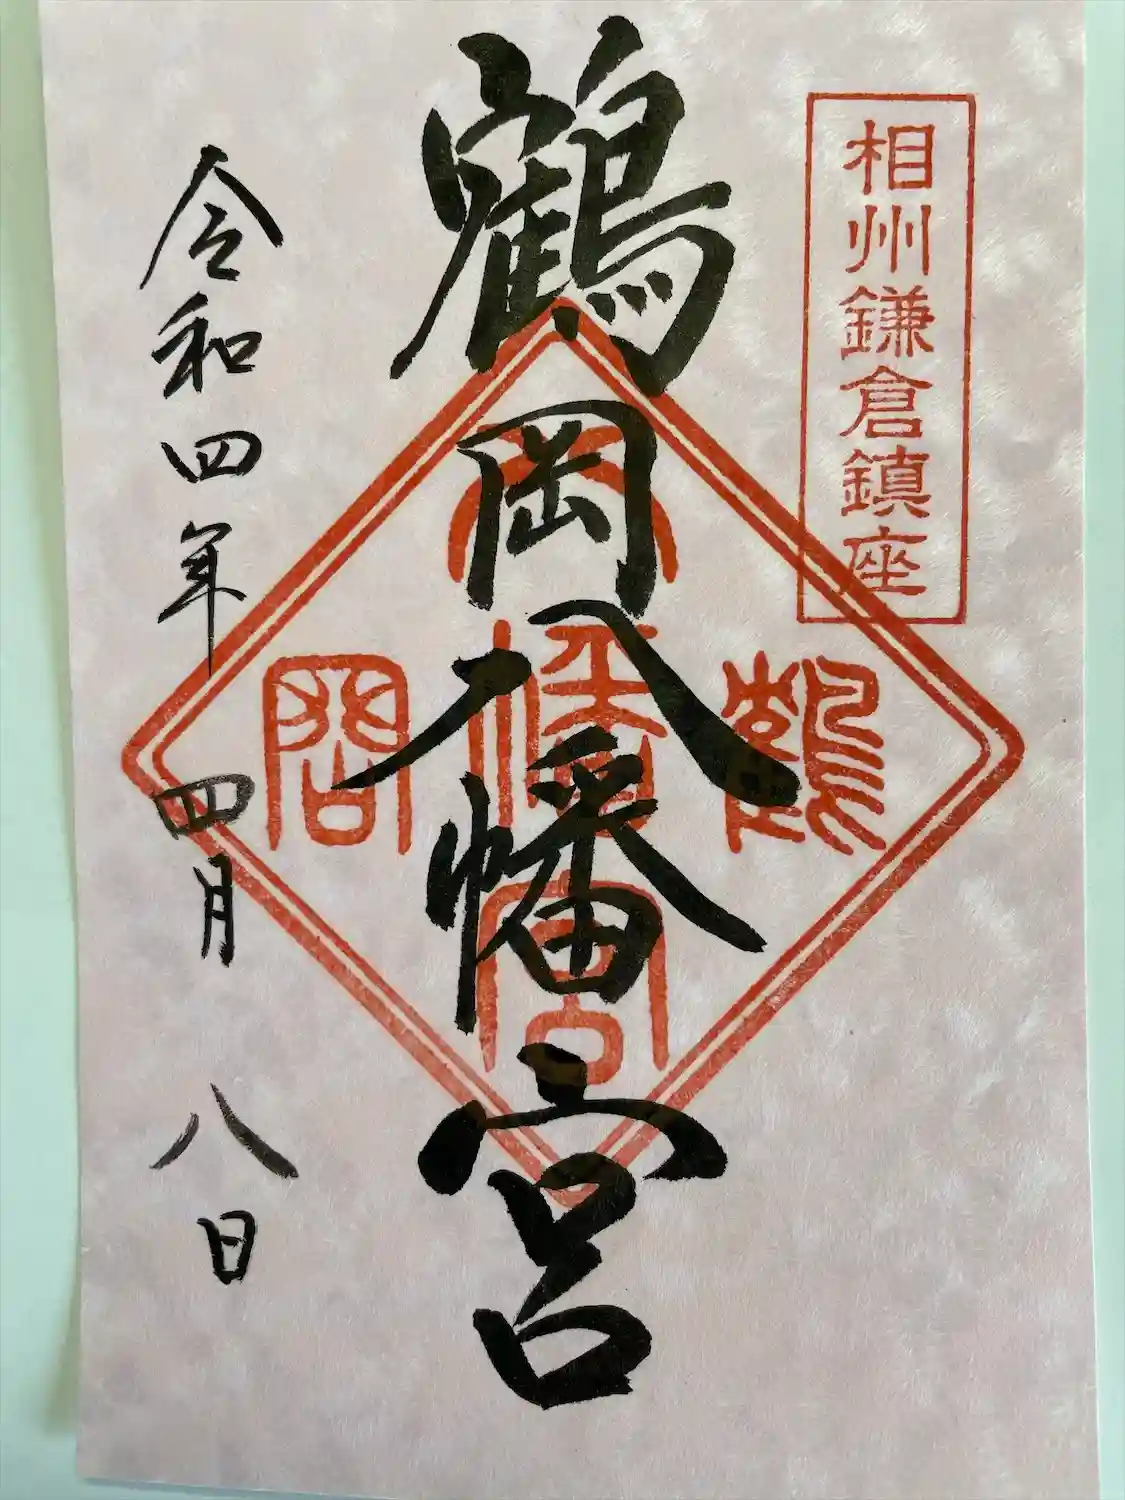 相州鎌倉鎮座
鶴岡八幡宮
鶴岡八幡宮
令和四年四月八日